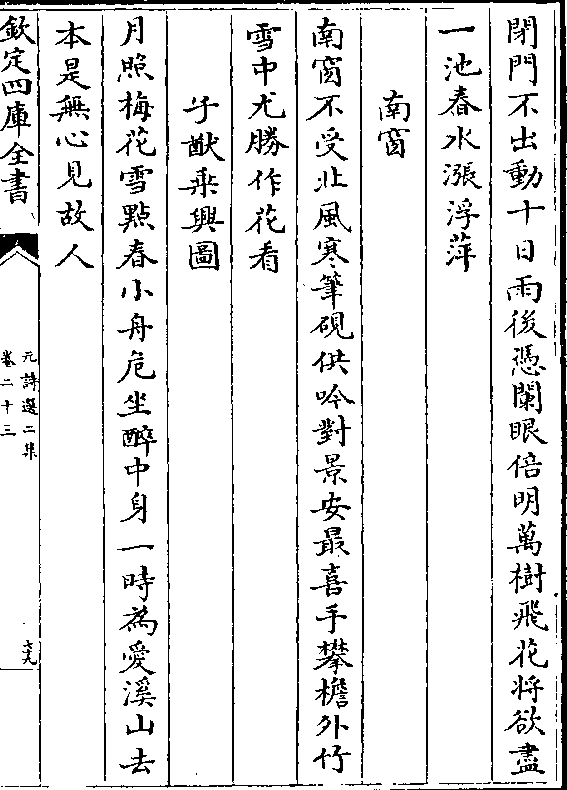 閉門不出動十日雨後憑闌眼倍明萬樹飛花將欲盡
一池春水漲浮萍
南窗
南窗不受北風寒筆硯供吟對景安最喜手攀檐外竹
雪中尤勝作花看
子猷乗興圖
月照梅花雪點春小舟危坐醉中身一時為愛溪山去
本是無心見故人
欽定四庫全書
元詩選二集
卷二十三
六九